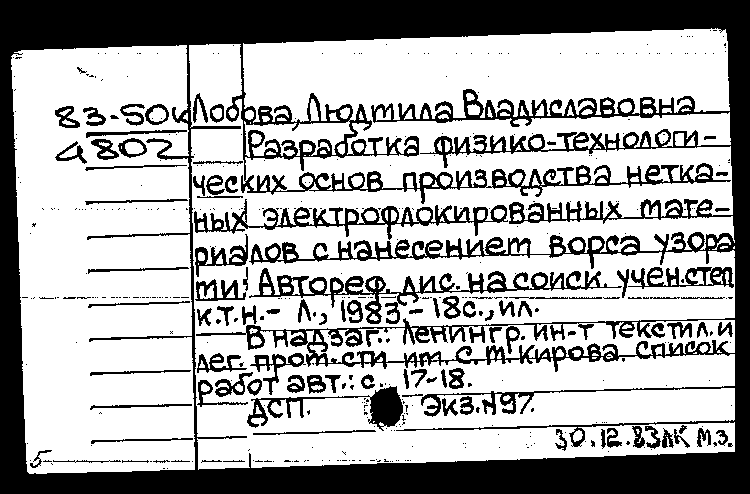 83-50к Лобова, Людмила Владиславовна.
4802 Разработка физико-технологи-
ческих основ производства нетка-
ных электрофлокированных мате-
риалов с нанесением ворса узора
ти: Автореф. дис. на соиск. учен.степ
к.т.н.- Л., 1983.- 18с., ил.
В надзаг.: Ленингр. ин-т текстил. и
лег. пром-сти им. С.М.Кирова. Список
работ авт.: с. 17-18.
ДСП. Экз.№97.
30.12.83ЛК М.З.
5